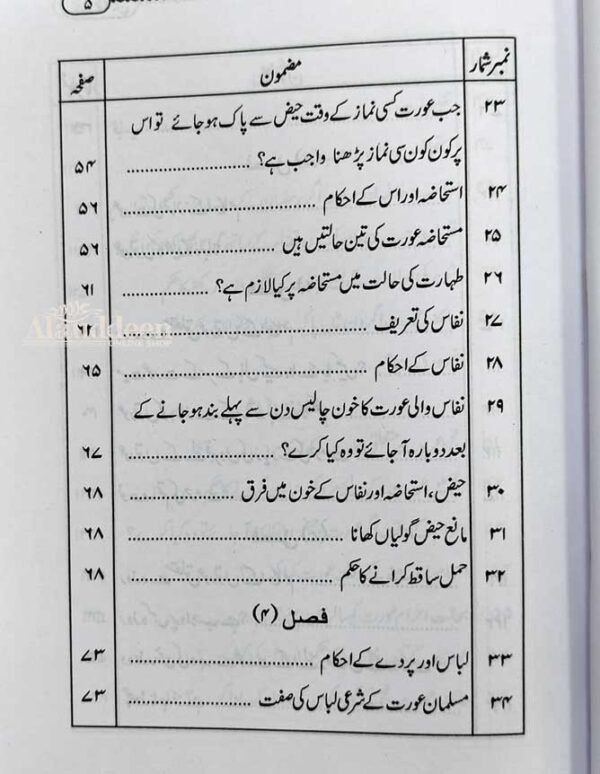 ۵
نمبر شمار مضمون صفحہ
۲۳ جب عورت کسی نماز کے وقت حیض سے پاک ہو جائے تو اس
پر کون کون سی نماز پڑھنا واجب ہے؟ .................... ۵۴
۲۴ استحاضہ اور اس کے احکام .................... ۵۶
۲۵ مستحاضہ عورت کی تین حالتیں ہیں .................... ۵۶
۲۶ طہارت کی حالت میں مستحاضہ پر کیا لازم ہے؟ .................... ۶۱
۲۷ نفاس کی تعریف .................... ۶۲
۲۸ نفاس کے احکام .................... ۶۵
۲۹ نفاس والی عورت کا خون چالیس دن سے پہلے بند ہو جانے کے
بعد دوبارہ آ جائے تو وہ کیا کرے؟ .................... ۶۷
۳۰ حیض، استحاضہ اور نفاس کے خون میں فرق .................... ۶۸
۳۱ مانع حیض گولیاں کھانا .................... ۶۸
۳۲ حمل ساقط کرانے کا حکم .................... ۶۸
فصل (۴)
۳۳ لباس اور پردے کے احکام .................... ۷۳
۳۴ مسلمان عورت کے شرعی لباس کی صفت .................... ۷۳
Alauddeen
ONLINE SHOP